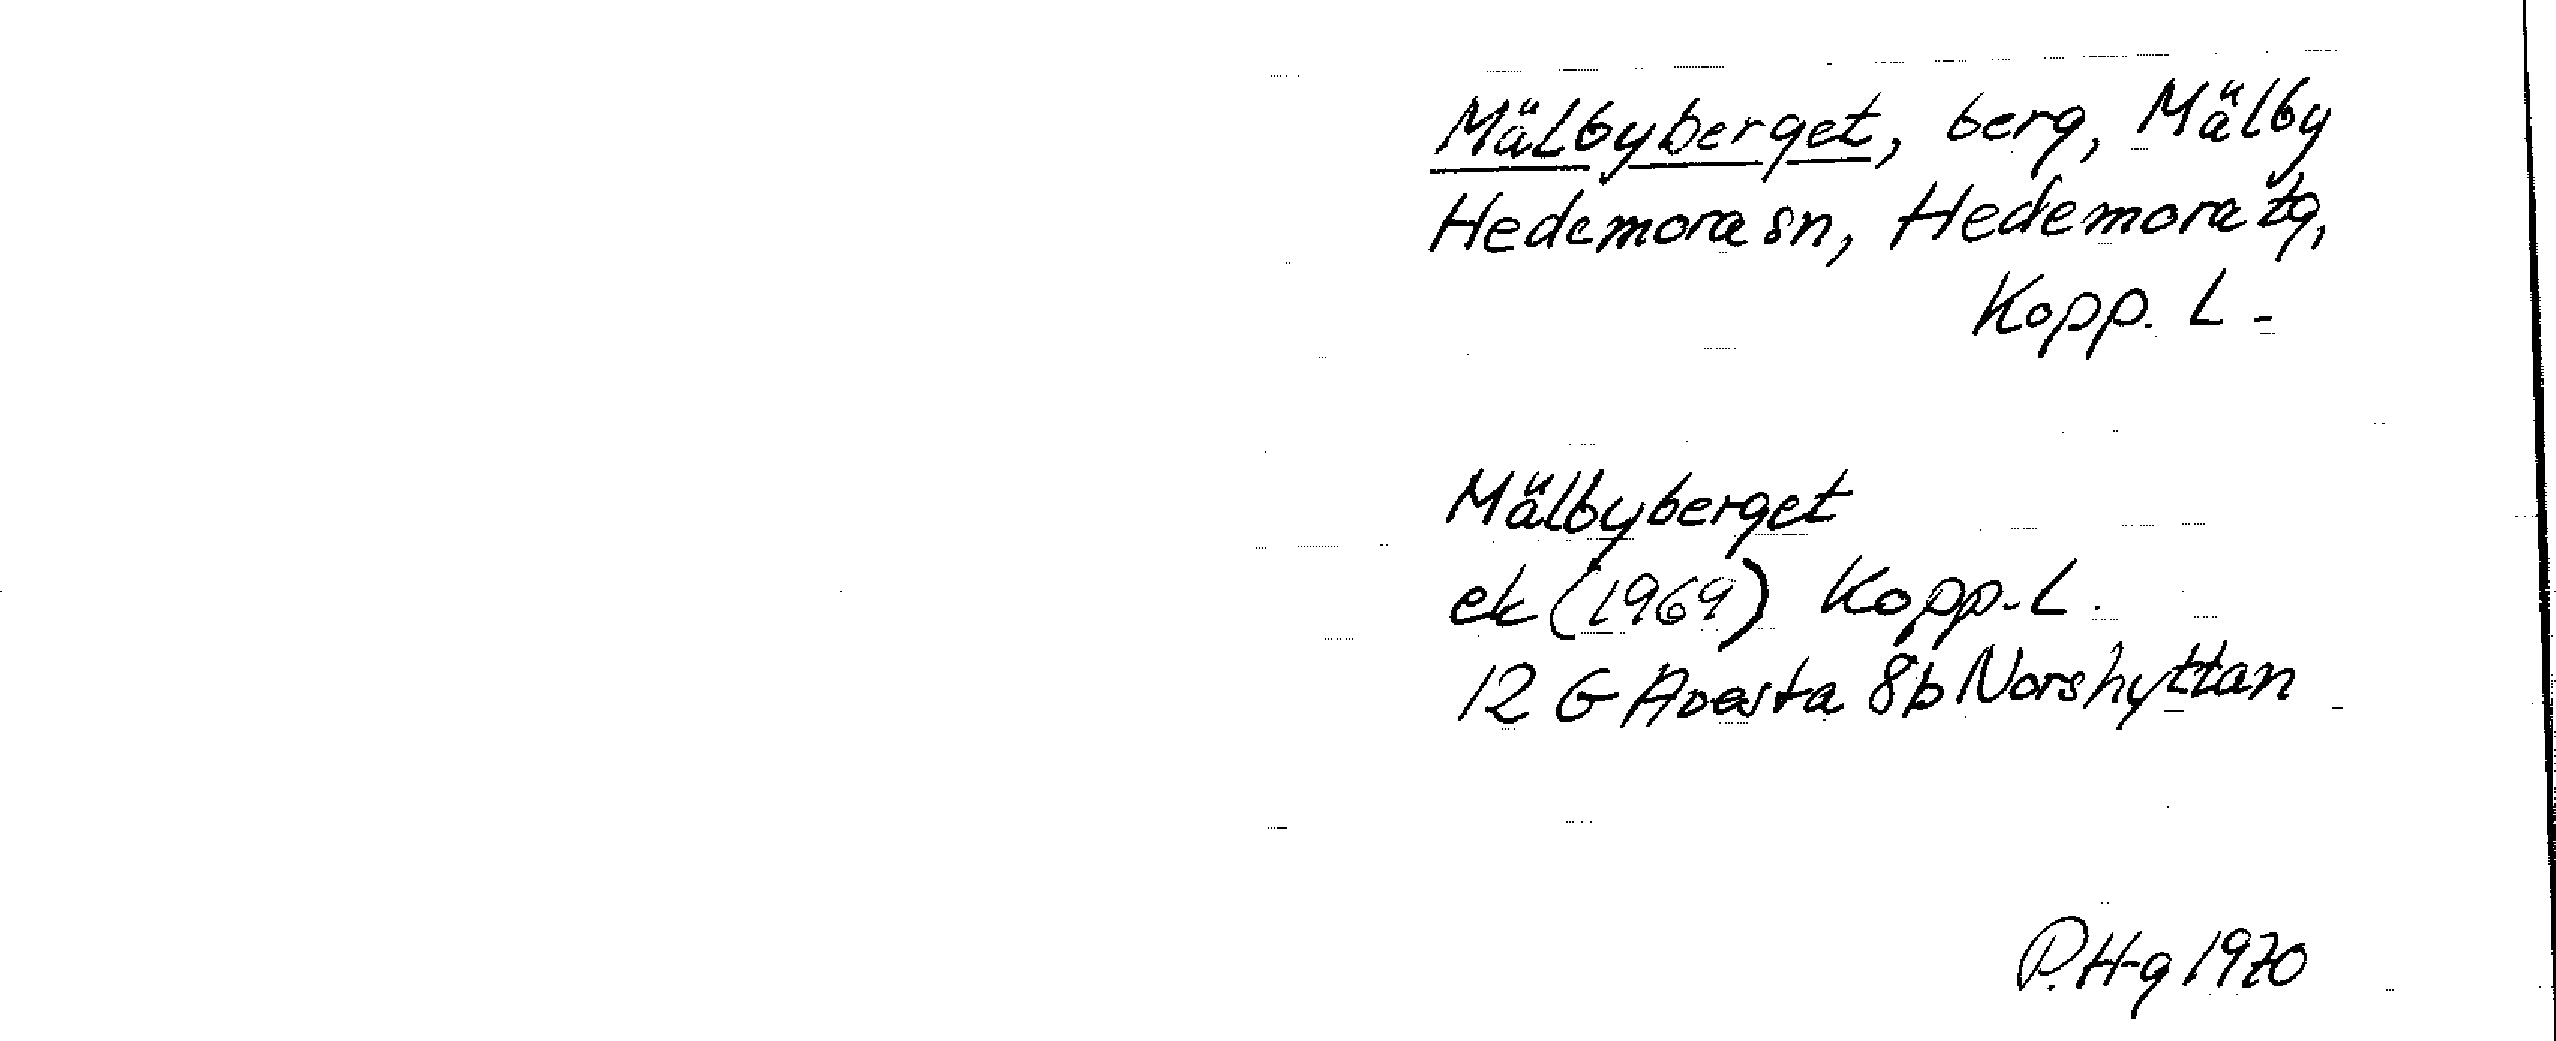 Mälbyberget, berg, Mälby
Hedemora sn, Hedemora tg,
Kopp. L.
Mälbyberget
ek (1969) Kopp. L.
12 G Avesta 8b Norshyttan
P. H-g 1970